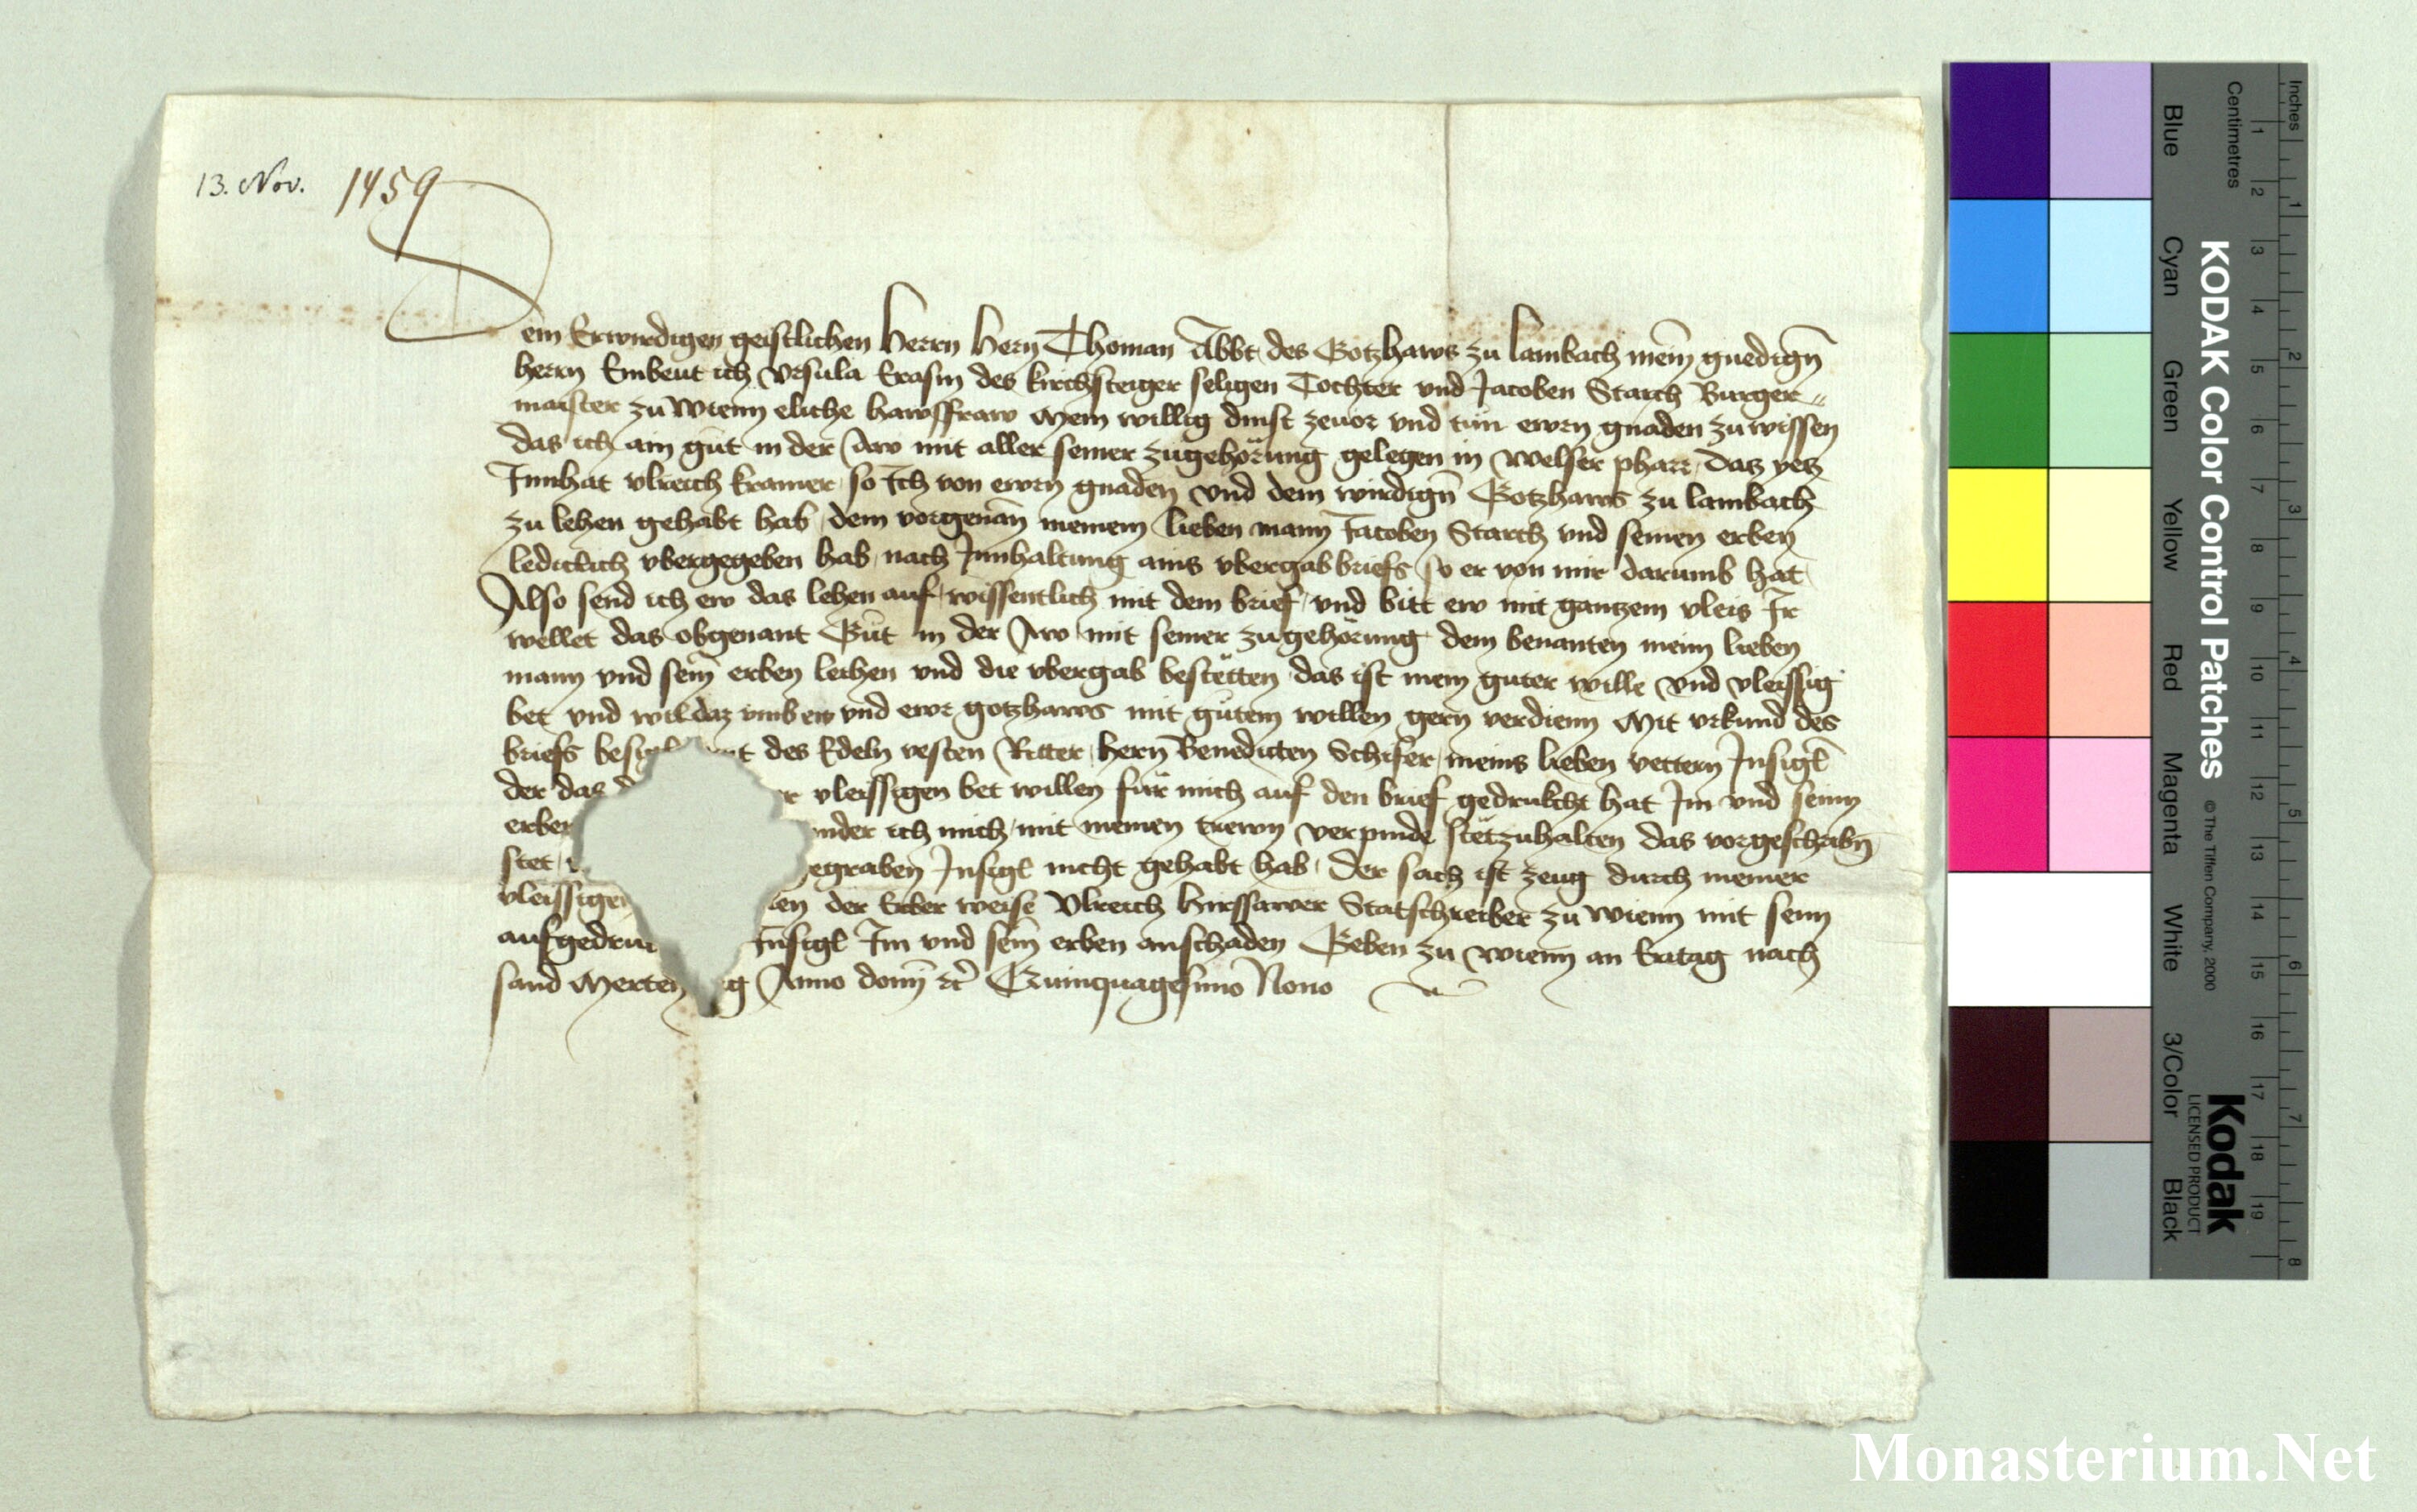 13. Nov. 1459
Dem Erwirdigen geistlichen herrn hern Thoman Abbt des Gotzhaws zu lambach meim gnedign
herrn Embeut ich Vrsula Erasm des kirchsteiger seligen Tochter vnd Jacoben Starch Burger
maister zu Wienn eliche hawsfraw Mein willig dinst zeuor vnd tun ewrn gnaden zu wissen
das ich ain gut in der Aw mit aller seiner zugehörung gelegen in Welser pharr, das yetz
Innhat vlreich kramer, so Ich von ewrn gnaden vnd dem wirdign Gotzhaws zu lambach
zu lehen gehabt hab, dem vorgenan meinem lieben mann Jacoben Starch vnd seinen erben
ledicleich vbergegeben hab, nach Innhaltung ains vbergabbriefs so er von mir darumb hat
Also send ich ew das lehen auf, wissentlich mit dem brief, vnd bitt ew mit gantzem vleis Ir
wellet das obgenant Gut in der Aw mit seiner zugehörung dem benanten meim lieben
mann vnd seim erben leihen vnd die vbergab bestëtten, das ist mein guter wille vnd vleissig
bet vnd wil daz vmb ew vnd ewr gotzhaws mit gutem willen gern verdienn Mit vrkund des
briefs besigl mit des Edeln vesten Ritter, hern Benedicten Schifer, meins lieben vettern Insigl
der das vleissigen bet willen für mich auf den brief gedrukcht hat Im vnd seinn
erben nder ich mich, mit meinen trewn verpinde stët zuhalten das vorgeschabn
stet, egraben Insigl nicht gehabt hab, Der sach ist zeug durch meiner
vleissigen ten der Erber weise Vlreich hirssawer Statschreiber zu Wienn mit seim
aufgedru Insigl Im vnd seim erben anschaden Geben zu Wienn an Eritag nach
sand Merten tag Anno domi etc Quinquagesimo Nono
Inches
Centimetres
1 2 3 4 5 6 7 8 9 10 11 12 13 14 15 16 17 18 19
1 2 3 4 5 6 7 8
KODAK Color Control Patches
© The Tiffen Company, 2000
Kodak
LICENSED PRODUCT
Blue
Cyan
Green
Yellow
Red
Magenta
White
3/Color
Black
Monasterium.Net